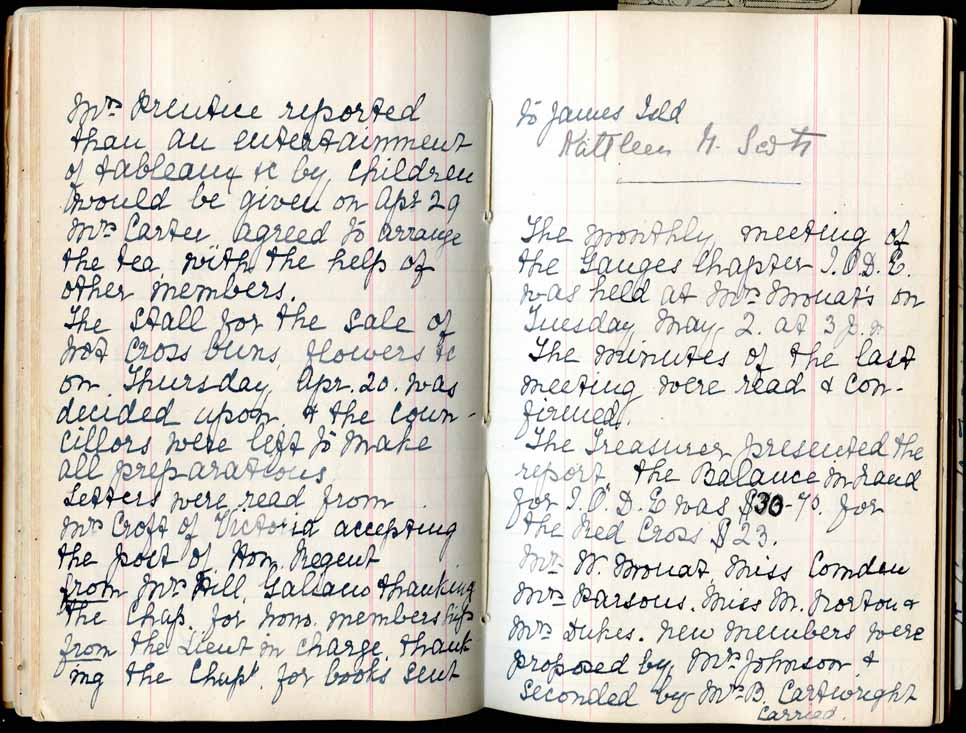 Mrs Prentice reported
than an entertainment
of tableaux &c by children
would be given on Apr 29
Mrs Carter agreed to arrange
the tea, with the help of
other members.
The stall for the sale of
hot cross buns, flowers &c
on Thursday, Apr. 20. was
decided upon, & the coun-
cillors were left to make
all preparations.
Letters were read from
Mrs Croft of Victoria accepting
the post of Hon. Regent
from Mrs Hill, Galiano thanking
the Chap. for hono. membership
from the Lieut in charge, thank
ing the Chapt. for books sent
to James Isld
Kathleen G. Scott
The monthly meeting of
the Ganges Chapter I.O.D.E.
was held at Mrs Mouat's on
Tuesday May 2. at 3 p.m
The minutes of the last
meeting were read & con-
firmed.
The Treasurer presented the
report, the Balance in hand
for I.O.D.E was $30-70. for
the Red Cross $23.
Mrs W. Mouat, Miss Comden
Mrs Parsons. Miss M. Norton &
Mrs Dukes. new members were
proposed by Mrs Johnson &
seconded by Mrs B. Cartwright
carried.